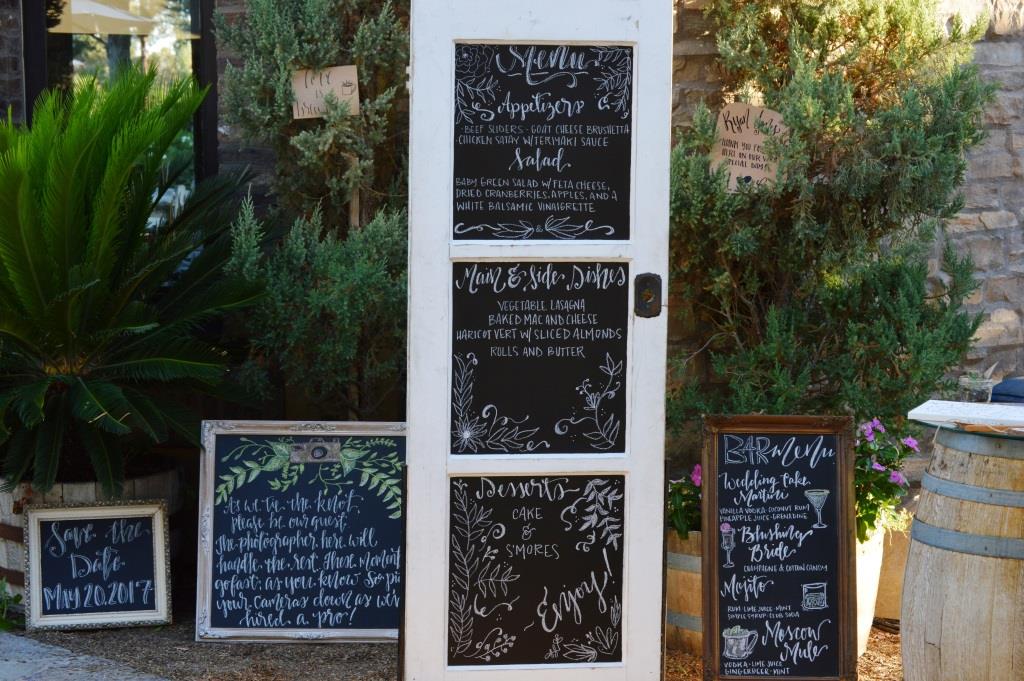 Menu
Appetizers
·BEEF SLIDERS·GOAT CHEESE BRUSHETTA
·CHICKEN SATAY W/TERIMAKI SAUCE
Salad
BABY GREEN SALAD W/FETA CHEESE,
DRIED CRANBERRIES, APPLES, AND A
WHITE BALSAMIC VINAIGRETTE
&
Main & Side Dishes
VEGETABLE LASAGNA
BAKED MAC AND CHEESE
HARICOT VERT W/ SLICED ALMONDS
ROLLS AND BUTTER
Desserts
CAKE
&
S'MORES
Enjoy!
Save the
Date
MAY 20.2017
As we tie the knot,
please be our guest.
The photographer here will
handle the rest. These moments
go fast, as you know. So put
your cameras down as we've
hired a pro!
BAR Menu
Wedding Cake
Martini
VANILLA VODKA·COCONUT RUM
PINEAPPLE JUICE·GRENADINE
Blushing
Bride
CHAMPAGNE & COTTON CANDY
Mojito
RUM·LIME JUICE·MINT
SIMPLE SYRUP·CLUB SODA
Moscow
Mule
VODKA·LIME JUICE
GINGER BEER·MINT
THANK YOU FOR
SPECIAL DAY